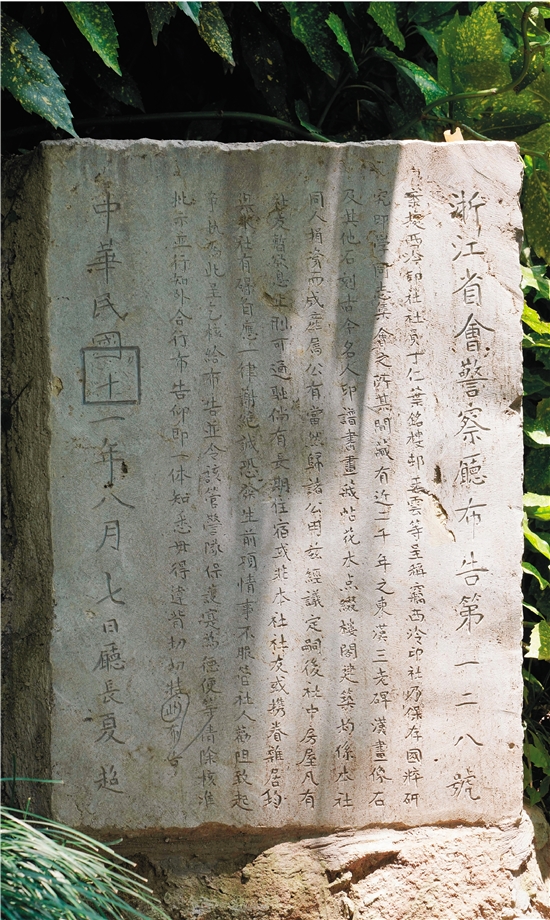 浙江省會警察廳布告第一二八號
案據西泠印社社員丁仁葉銘樓邨吳雲等呈稱竊西泠印社乃保存國粹研
究印學同志集會之所其間藏有近二千年之東漢三老碑漢畫像石
及其他石刻古今名人印譜書畫箴帖花木点綴樓閣建築均係本社
同人捐資而成產屬公有當然歸諸公用玆經議定嗣後社中房屋凡有
社友暫爲息止則可通融倘有長期住宿或非本社社友或携眷雜居均
與本社有碍自應一律謝絕誠恐發生前項情事不服管社人勸阻致起
爭執爲此呈乞核給布告並令該管警隊保護實爲德便等情除核准
批示並行知外合行布告仰即一体知悉毋得違背切切特此布告
中華民國十一年八月七日廳長夏超